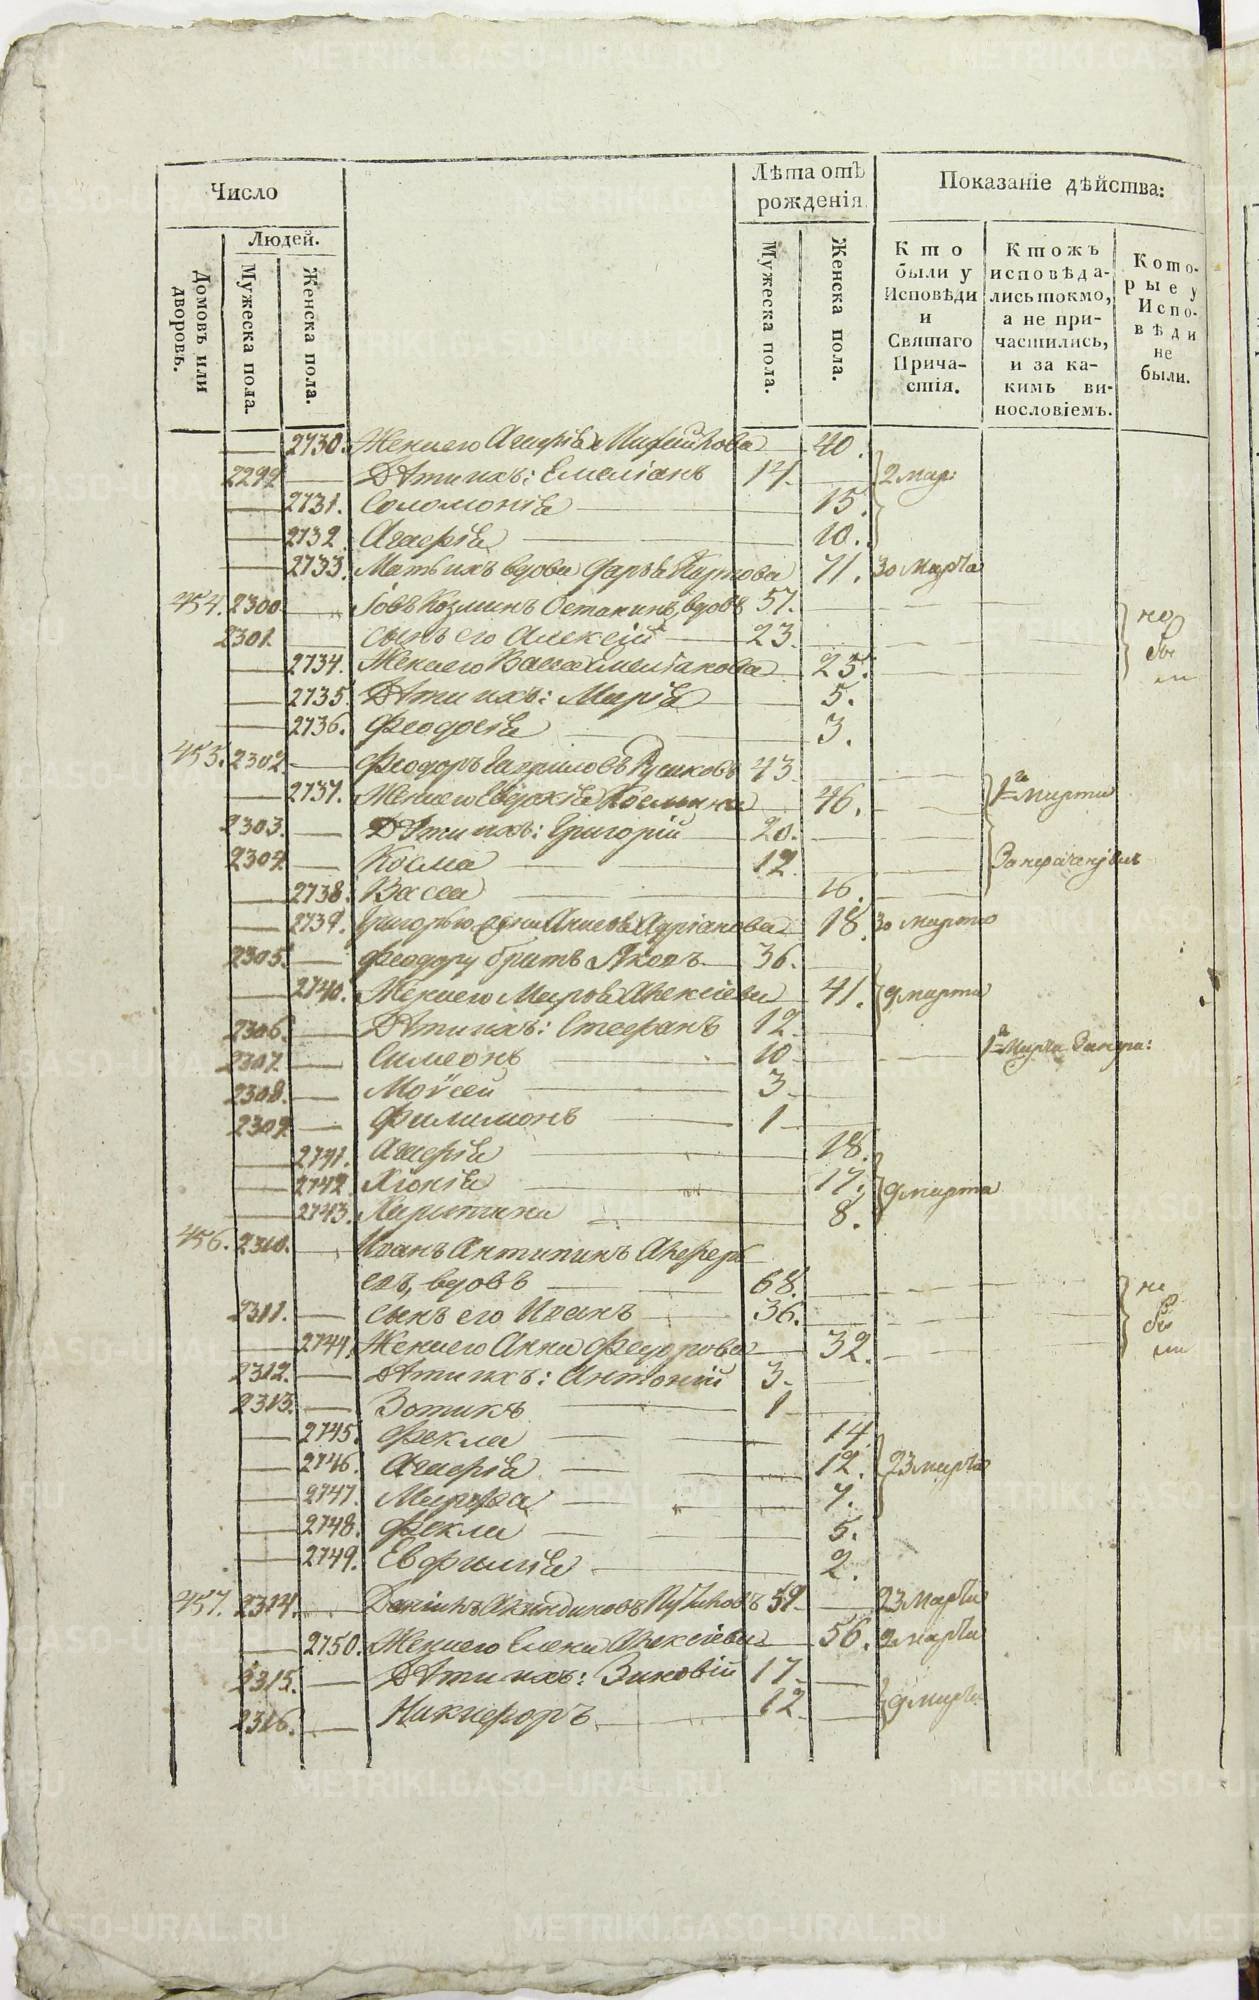 Число
Лѣта отъ рожденія.
Показаніе дѣйства:
Домовъ или дворовъ.
Людей.
Мужеска пола.
Женска пола.
Мужеска пола.
Женска пола.
Кто были у Исповѣди и Святаго Причастія.
Ктожъ исповѣдались токмо, а не причастились, и за какимъ винословіемъ.
Которые у Исповѣди не были.
2730. Жена его Агафія 40.
2299 Дѣти ихъ: Емеліанъ 14. 2 мар:
2731. Соломонія 15.
2732 Агафія 10.
2733. Мать ихъ вдова Дарья 71. 30 Марта
454. 2300 Іовъ Козминъ Останинъ, вдовъ 57. не бы ли
2301. сынъ его Алексій 23
2734. Жена его Васса Емеліанова 23.
2735. Дѣти ихъ: Марія 5.
2736. Феодосія 3.
455. 2302. Феодоръ Гавриловъ Русаковъ 43
2737. Жена его Евдокія Космина 46. 1го Марта
2303. Дѣти ихъ: Григорій 20.
2304. Косма 12
2738. Васса 16.
2739. Григорью жена Адріанова 18. 30 марта
2305. Феодору братъ Яковъ 36.
2740. Жена его Мавра Алексіева 41. 9 марта
2306. Дѣти ихъ: Стефанъ 12
2307. Симеонъ 10 1го Марта
2308. Моѵсей 3
2309 Филимонъ 1
2741. Агафія 18.
2742. Хіонія 17. 9 марта
2743. Харитина 8.
456. 2310. Иванъ Антипинъ
вдовъ 68. не бы ли
2311. сынъ его Иванъ 36.
2744. Жена его Анна Феодорова 32.
2312. Дѣти ихъ: Антоній 3.
2313. Зотикъ 1
2745. Фекла 14
2746. Агафія 12. 23 марта
2747. Марфа 7.
2748. Фекла 5.
2749. Евфимія 2.
457. 2314. Даніилъ Акиндиновъ 59 23 Марта
2750. Жена его Елена Алексіева 56. 2 марта
2315. Дѣти ихъ: Зиновій 17 9 марта
2316. Никифоръ 12
METRIKI.GASO-URAL.RU